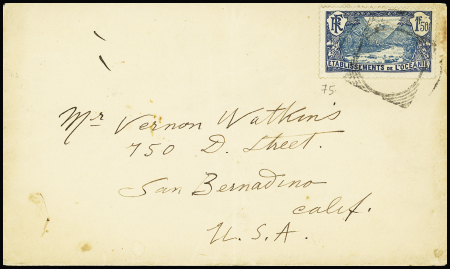 RF 1F50
ÉTABLISSEMENTS DE L'OCÉANIE
75
Mr Vernon Watkins
750 D. Street.
San Bernadino
Calif.
U. S. A.